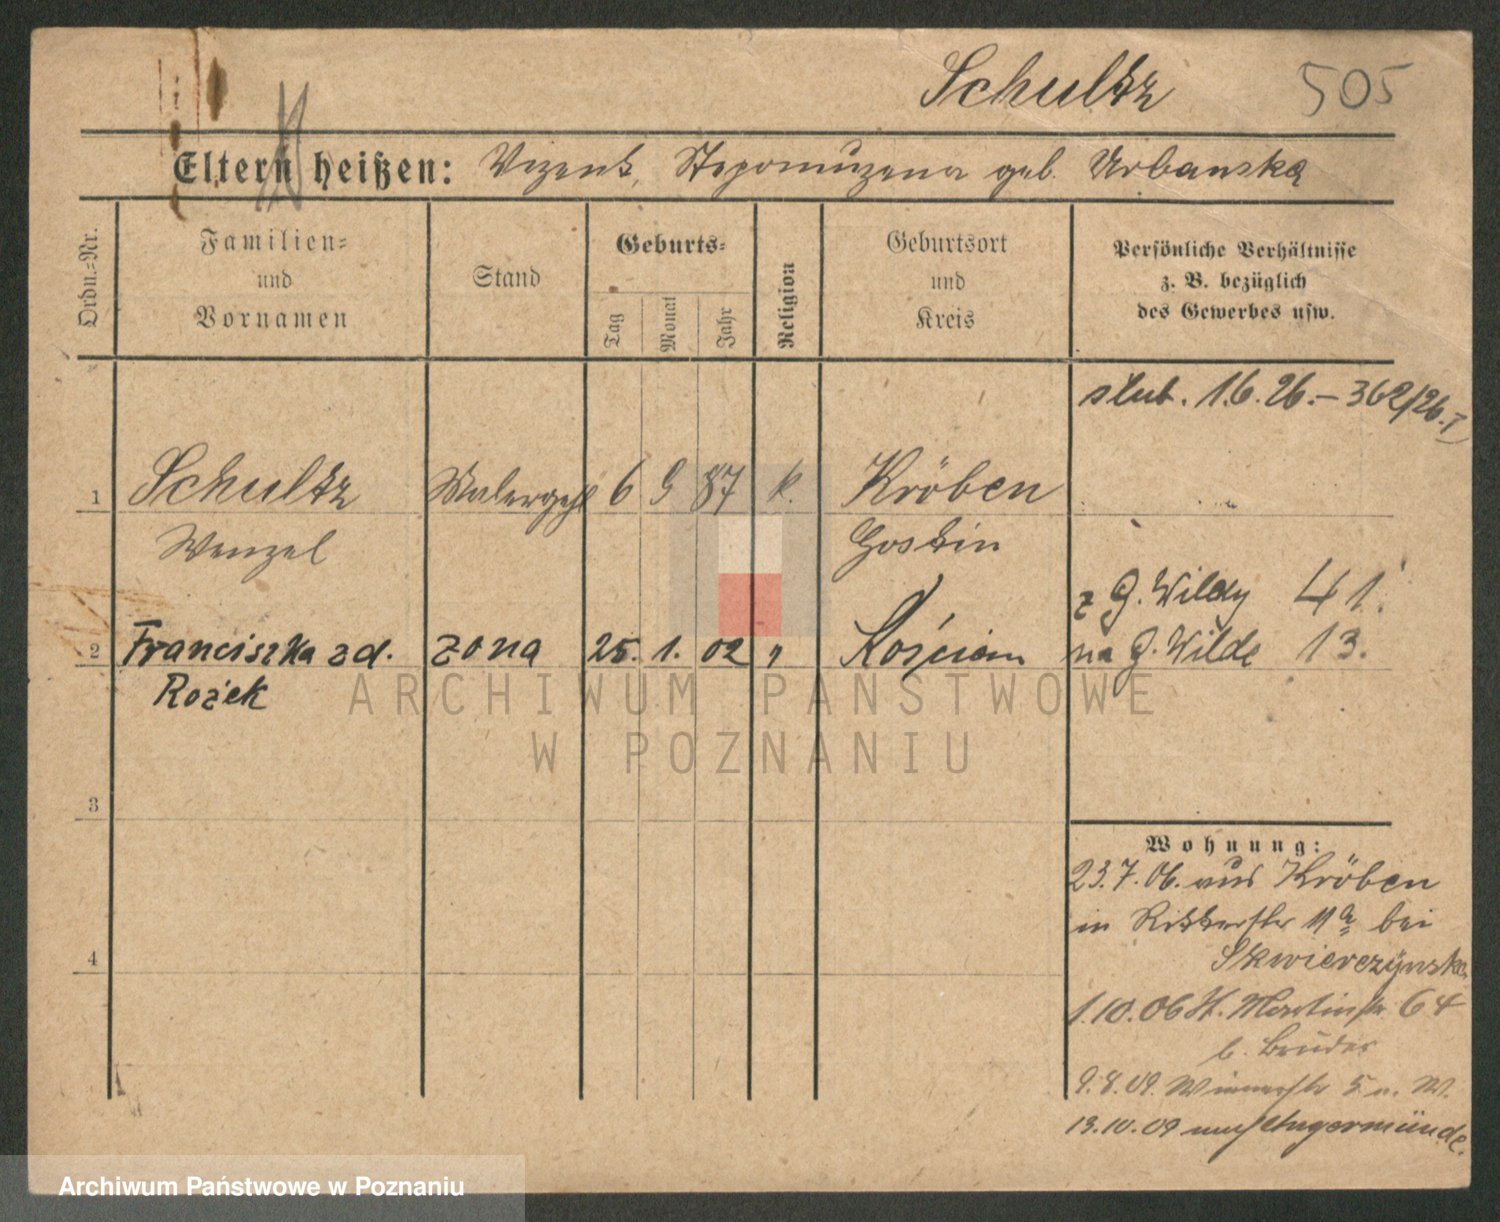 Schultz 505
Eltern heißen: Vizent, Nepomuzena geb. Urbanska
Ordn.=Nr.
Familien=
und
Vornamen
Stand
Geburts=
Tag
Monat
Jahr
Religion
Geburtsort
und
Kreis
Persönliche Verhältnisse
z. B. bezüglich
des Gewerbes usw.
ślub. 1.6.26.- 362/26.I
1 Schultz Malergeh 6 9 87 k. Kröben
Wenzel Gostin
z G. Wildy 41.
2 Franciszka zd. żona 25. 1. 02 " Kościan na G. Wilde 13.
Rożek
ARCHIWUM PAŃSTWOWE
W POZNANIU
3
Wohnung:
23.7.06. aus Kröben
in Ritterstr 11a bei
Skwierczynska
4
1.10.06 St. Martinstr 64
b. Bruder
9.8.09. 5 W.
13.10.09 nach Angermünde.
Archiwum Państwowe w Poznaniu